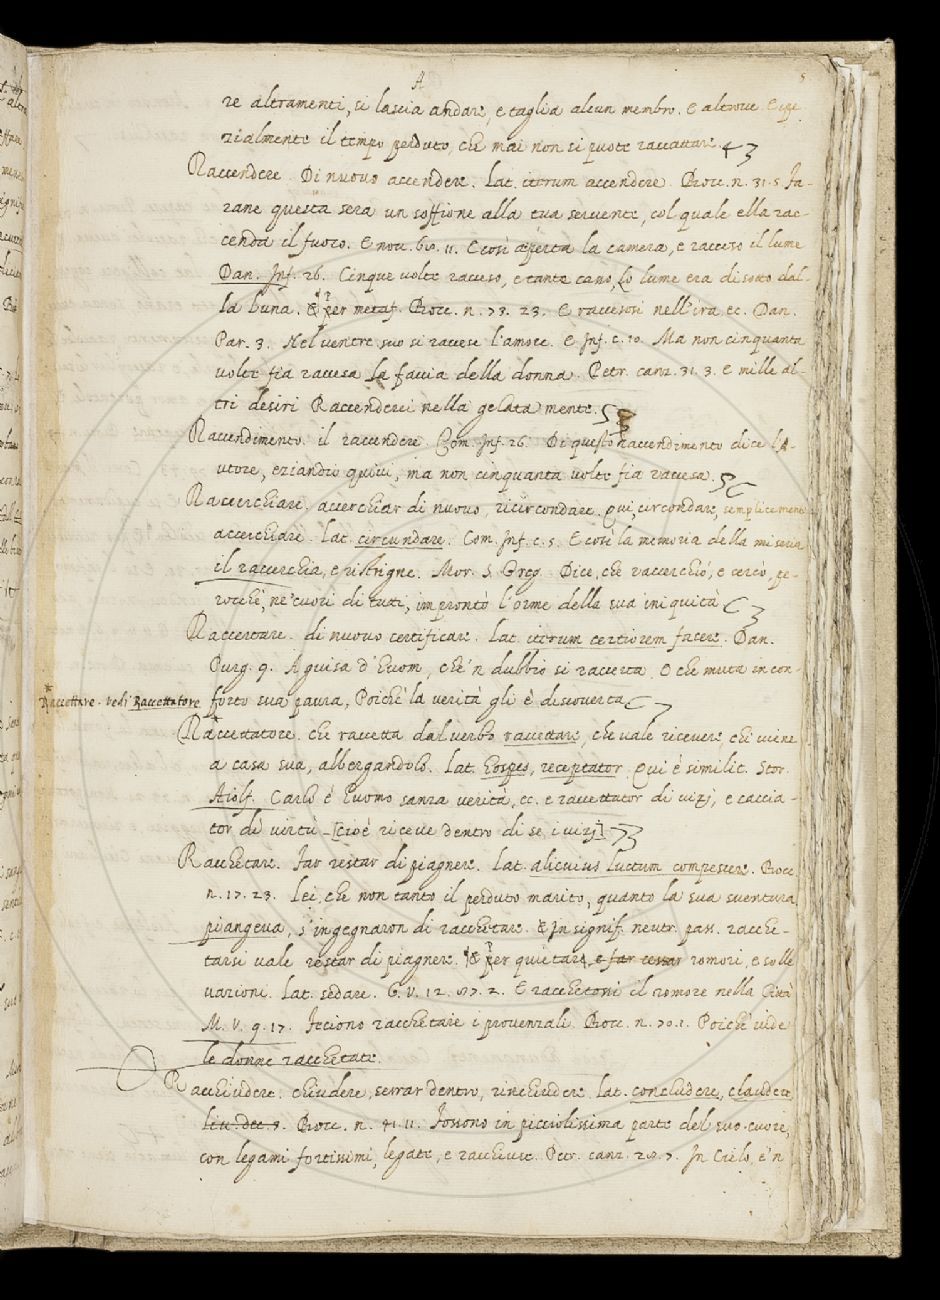 A
5
re altramenti, si lascia andare, e taglia alcun membro. E altrove. E spe
zialmente il tempo perduto, che mai non si puote raccattare.
Raccendere. Di nuovo accendere. Lat. iterum accendere. Bocc. n. 31. 5. Fa-
rane questa sera un soffione alla tua servente, col quale ella rac-
cenda il fuoco. E nov. 60. 11. E così aperta la camera, e racceso il lume
Dan. Inf. 26. Cinque volte racceso, e tante casso, Lo lume era di sotto dal-
la luna. E per metaf. Bocc. n. 73. 23. E raccesosi nell'ira ec. Dan.
Par. 3. Nel ventre suo si raccese l'amore. E Inf. c. 10. Ma non cinquanta
volte fia raccesa La faccia della donna. Petr. canz. 31. 3. E mille al-
tri desiri Raccendersi nella gelata mente.
Raccendimento. il raccendere. Com. Inf. 26. Di questo raccendimento dice l'A-
utore, eziandio quivi, ma non cinquanta volte fia raccesa.
Raccerchiare. accerchiar di nuovo, ricircondare. Qui, circondare, semplicemente
accerchiare. Lat. circundare. Com. Inf. c. 5. E così la memoria della miseria
il raccerchia, e ristrigne. Mor. S. Greg. Dice, che raccerchiò, e cercò, pe-
rocchè, ne' cuori di tutti, improntò l'orme della sua iniquità
Raccertare. di nuovo certificare. Lat. iterum certiorem facere. Dan.
Purg. 9. A guisa d'huom, che 'n dubbio si raccerta. O che muta in con-
Raccettare. vedi Raccettatore
forto sua paura, Poichè la verità gli è discoverta
Raccettatore. che raccetta dal verbo raccettare, che vale ricevere, chi viene
a casa sua, albergandolo. Lat. hospes, receptator. Qui è similit. Stor.
Aiolf. Carlo è huomo sanza verità, ec. e raccettator di vizj, e caccia-
tor di virtù - [cioè riceve dentro di se i vizj]
Racchetare. Far restar di piagnere. Lat. alicuius luctum compescere. Bocc.
n. 17. 23. Lei, che non tanto il perduto marito, quanto la sua sventura
piangeva, s'ingegnaron di racchetare. E In signif. neutr. pass. racche-
tarsi vale restar di piagnere. E per quietare, e far cessar romori, e solle
vazioni. Lat. sedare. G. V. 12. 2. E racchetossi il romore nella Città
M. V. 9. 17. Feciono racchetare i provenzali. Bocc. n. 70. 1. Poichè vide
le donne racchetate.
Racchiudere. chiudere, serrar dentro, rinchiudere. Lat. concludere, claudere
Bocc. n. 41. 11. Fossono in picciolissima parte del suo cuore,
con legami fortissimi, legate, e racchiuse. Petr. canz. 28. 7. In Cielo, e 'n